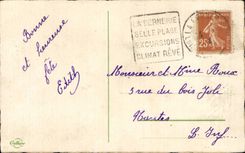 Bonne
et heureuse
fête
Edith
LA BERNERIE
BELLE PLAGE
EXCURSIONS
CLIMAT RÊVÉ
25
Monsieur et Mme Boux
3 rue du bois Joli
Nantes
L. Infre